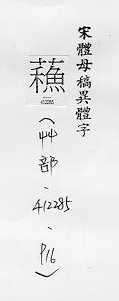 宋體母稿異體字
蘓
412285
（艸部-412285-P16）